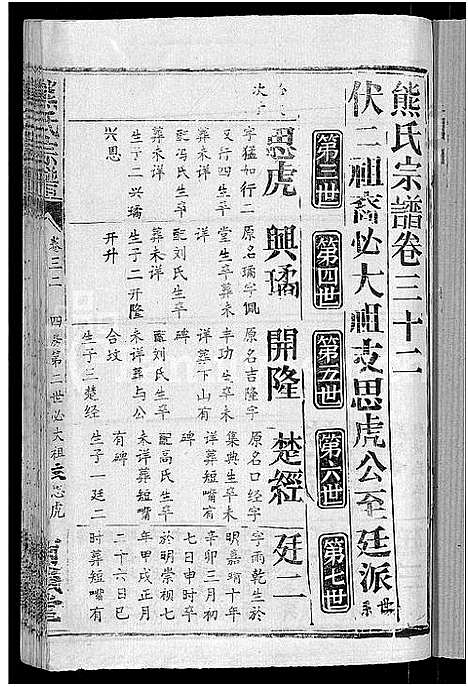 熊氏宗譜卷三十二
伏二祖裔必大祖支思虎公至廷派
世系
第三世
第四世
第五世
第六世
第七世
思虎
字猛如行二
又行四生卒
葬未詳
配馮氏生卒
葬未詳
生子二興璚
興恩
興璚
原名璚字佩
堂生卒葬未
詳
配刘氏生卒
葬未詳
生子二開隆
開升
開隆
原名吉隆字
丰功生卒未
詳葬下山有
碑
配刘氏生卒
未詳葬与公
合坟
生子一楚经
楚經
原名口经字
集典生卒未
詳葬短嘴有
碑
配高氏生卒
未詳葬短嘴
有碑
生子一廷二
廷二
字雨乾生於
明嘉靖十年
辛卯三月初
七日申時卒
於明崇禎七
年甲戌正月
二十六日巳
时葬短嘴有
熊氏宗譜
卷三二
第三世必大祖支思虎